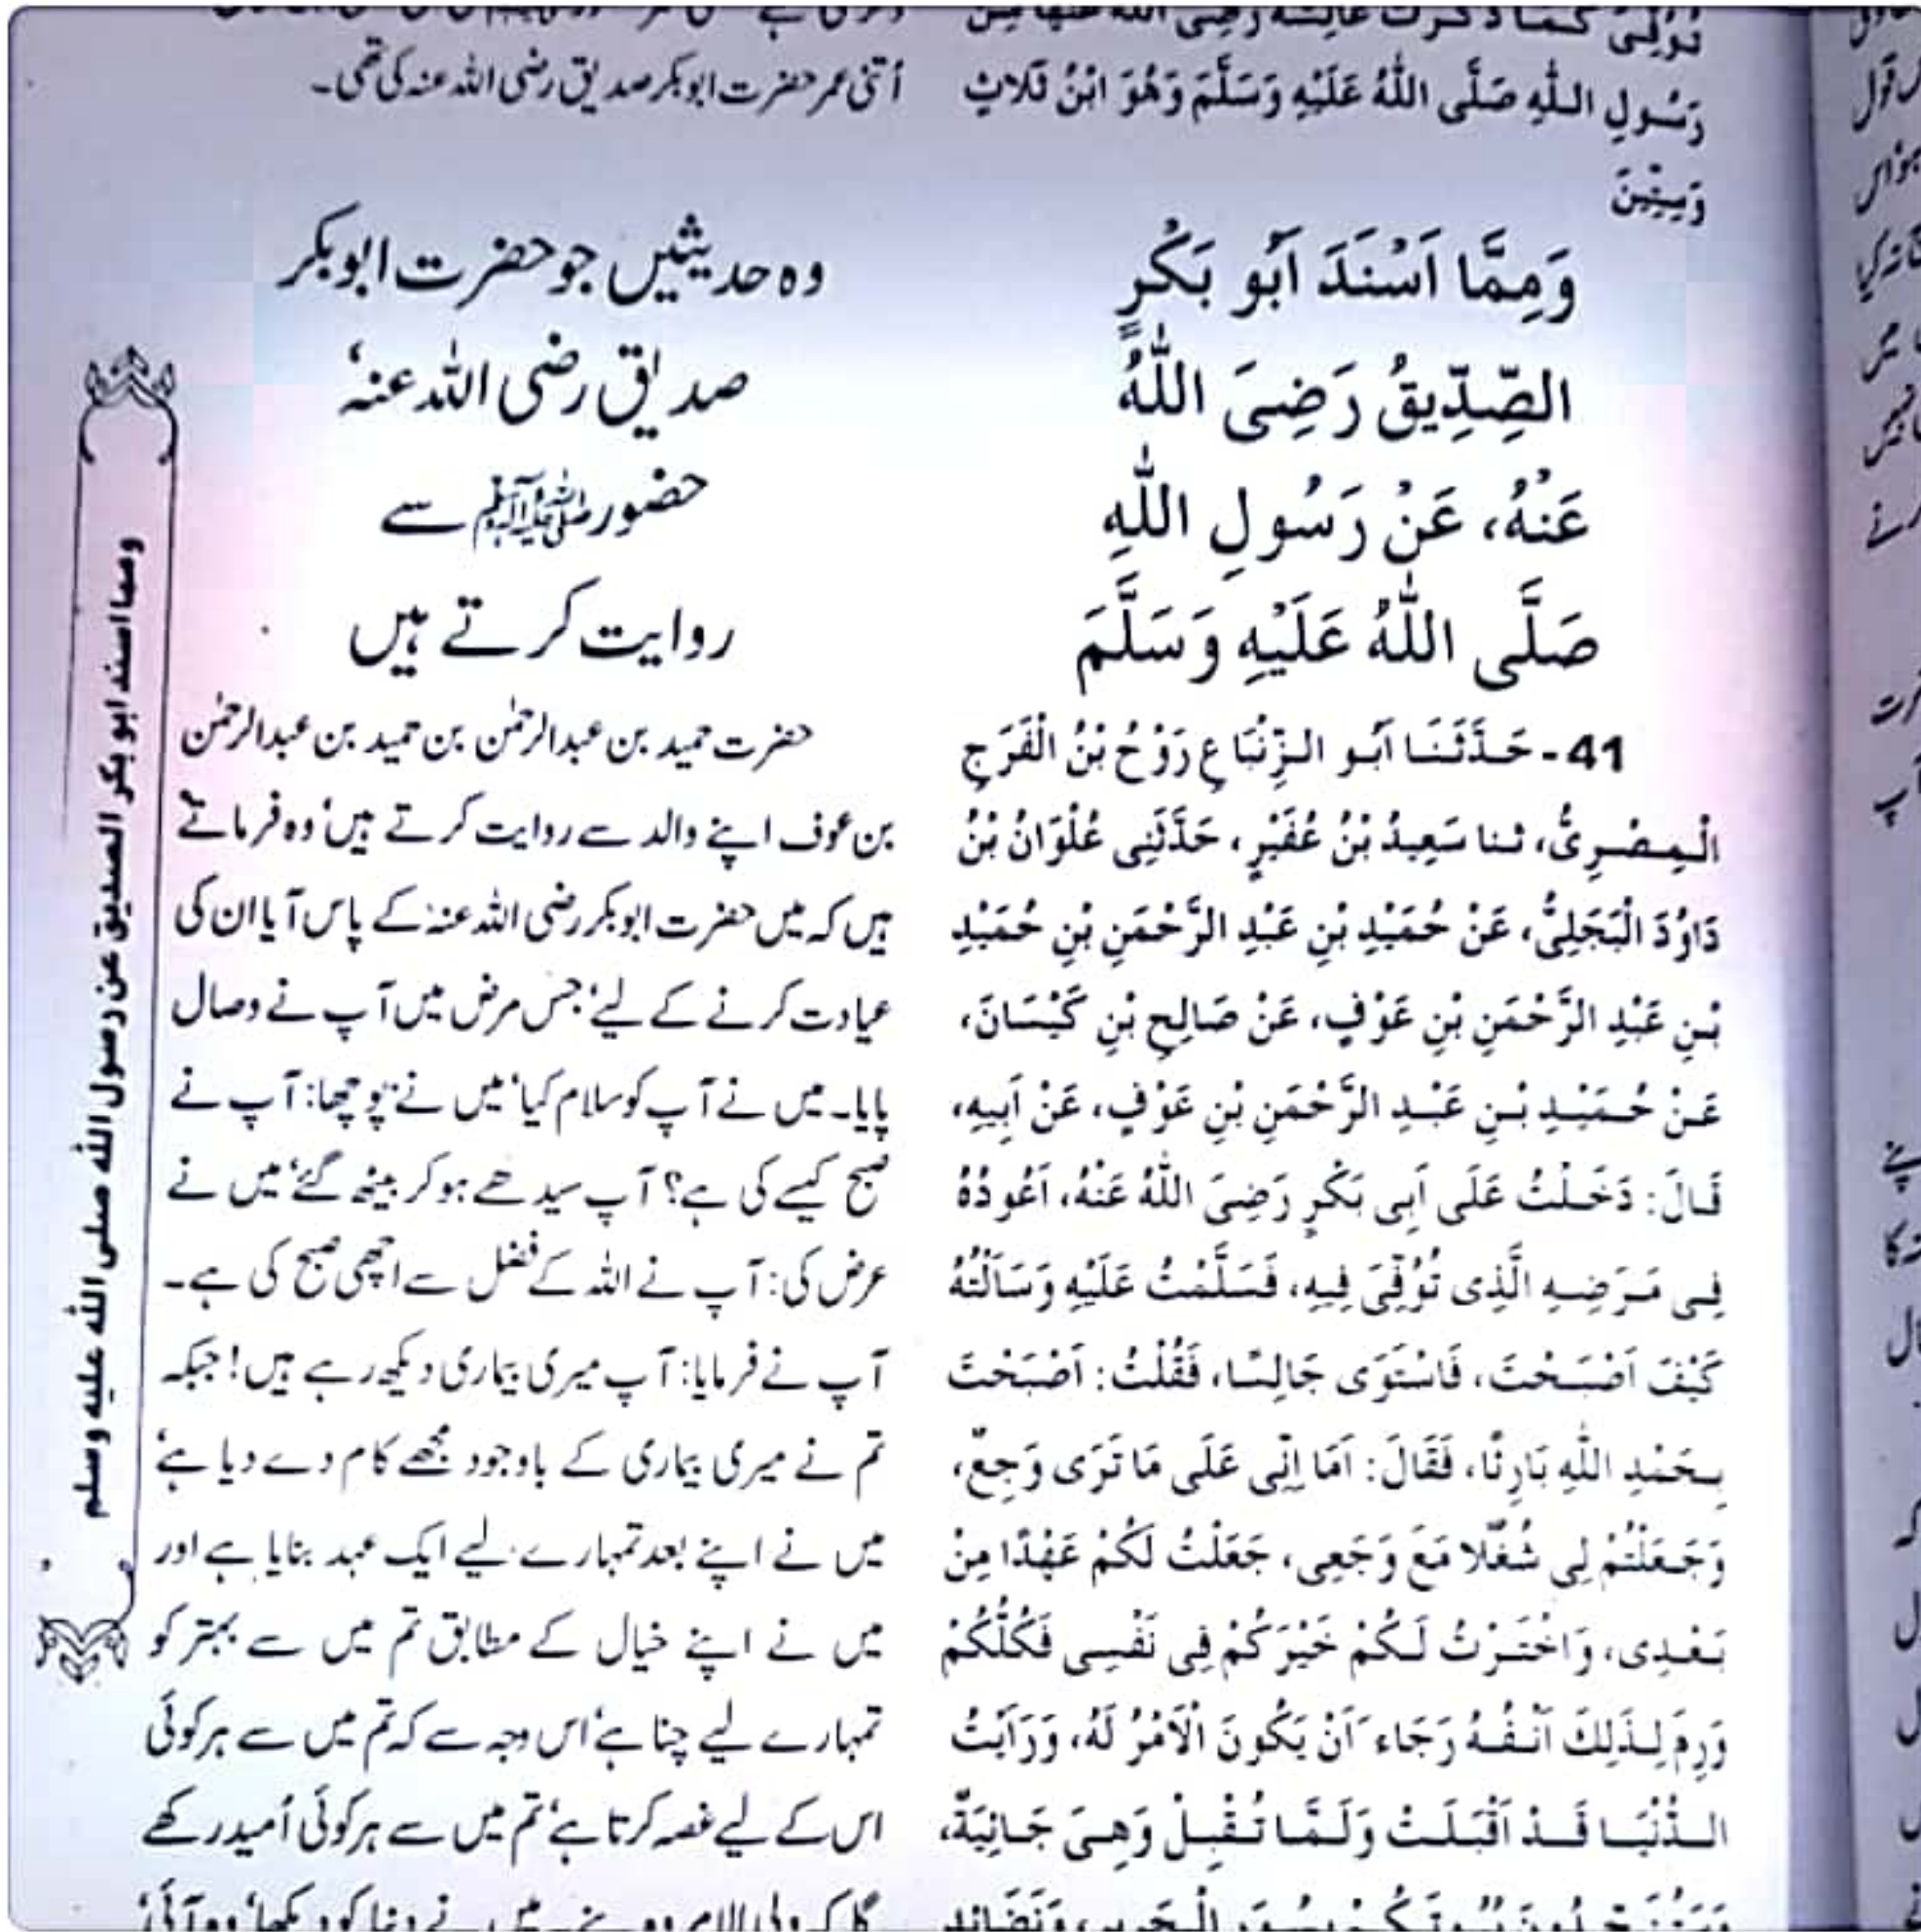 توفی کما ذکرت عائشة رضی الله عنها من
رَسُولِ اللّٰهِ صَلَّى اللّٰهُ عَلَيْهِ وَسَلَّمَ وَهُوَ ابْنُ ثَلاثٍ
وَسِتِّينَ
وَمِمَّا اَسْنَدَ اَبُو بَكْرٍ
الصِّدِّيقُ رَضِىَ اللّٰهُ
عَنْهُ، عَنْ رَسُولِ اللّٰهِ
صَلَّى اللّٰهُ عَلَيْهِ وَسَلَّمَ
41- حَدَّثَنَا اَبُو الزِّنْبَاعِ رَوْحُ بْنُ الْفَرَجِ
الْمِصْرِىُّ، ثنا سَعِيدُ بْنُ عُفَيْرٍ، حَدَّثَنِى عُلْوَانُ بْنُ
دَاوُدَ الْبَجَلِىُّ، عَنْ حُمَيْدِ بْنِ عَبْدِ الرَّحْمَنِ بْنِ حُمَيْدِ
بْنِ عَبْدِ الرَّحْمَنِ بْنِ عَوْفٍ، عَنْ صَالِحِ بْنِ كَيْسَانَ،
عَنْ حُمَيْدِ بْنِ عَبْدِ الرَّحْمَنِ بْنِ عَوْفٍ، عَنْ اَبِيهِ،
قَالَ: دَخَلْتُ عَلَى اَبِى بَكْرٍ رَضِىَ اللّٰهُ عَنْهُ، اَعُودُهُ
فِى مَرَضِهِ الَّذِى تُوُفِّىَ فِيهِ، فَسَلَّمْتُ عَلَيْهِ وَسَاَلْتُهُ
كَيْفَ اَصْبَحْتَ، فَاسْتَوَى جَالِسًا، فَقُلْتُ: اَصْبَحْتَ
بِحَمْدِ اللّٰهِ بَارِئًا، فَقَالَ: اَمَا اِنِّى عَلَى مَا تَرَى وَجِعٌ،
وَجَعَلْتُمْ لِى شُغُلًا مَعَ وَجَعِى، جَعَلْتُ لَكُمْ عَهْدًا مِنْ
بَعْدِى، وَاخْتَرْتُ لَكُمْ خَيْرَكُمْ فِى نَفْسِى فَكُلُّكُمْ
وَرِمَ لِذَلِكَ اَنْفُهُ رَجَاءَ اَنْ يَكُونَ الْاَمْرُ لَهُ، وَرَاَيْتُ
الدُّنْيَا قَدْ اَقْبَلَتْ وَلَمَّا تُقْبِلْ وَهِىَ جَائِيَةٌ،
اُتنی عمر حضرت ابوبکر صدیق رضی اللہ عنہ کی تھی۔
وہ حدیثیں جو حضرت ابوبکر
صدیق رضی اللہ عنہٗ
حضور ﷺ سے
روایت کرتے ہیں
حضرت حمید بن عبدالرحمٰن بن حمید بن عبدالرحمٰن
بن عوف اپنے والد سے روایت کرتے ہیں' وہ فرماتے
ہیں کہ میں حضرت ابوبکر رضی اللہ عنہٗ کے پاس آیا ان کی
عیادت کرنے کے لیے' جس مرض میں آپ نے وصال
پایا۔ میں نے آپ کو سلام کیا' میں نے پوچھا: آپ نے
صبح کیسے کی ہے؟ آپ سیدھے ہو کر بیٹھ گئے' میں نے
عرض کی: آپ نے اللہ کے فضل سے اچھی صبح کی ہے۔
آپ نے فرمایا: آپ میری بیماری دیکھ رہے ہیں! جبکہ
تم نے میری بیماری کے باوجود مجھے کام دے دیا ہے'
میں نے اپنے بعد تمہارے لیے ایک عہد بنایا ہے اور
میں نے اپنے خیال کے مطابق تم میں سے بہتر کو
تمہارے لیے چنا ہے' اس وجہ سے کہ تم میں سے ہر کوئی
اس کے لیے غصہ کرتا ہے' تم میں سے ہر کوئی اُمید رکھے
ومما اسند ابو بكر الصديق عن رسول الله صلى الله عليه وسلم